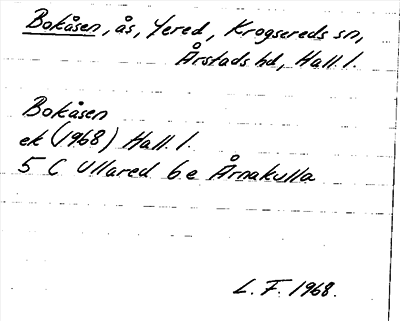 Bokåsen, ås, Yered, Krogsereds sn,
Årstads hd, Hall. l.
Bokåsen
ek (1968) Hall. l.
5 C Ullared 6 e Årnakulla
L. F. 1968.